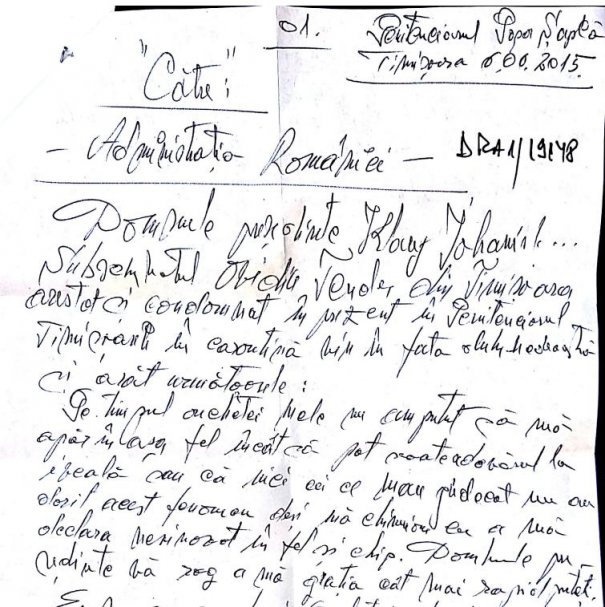 01.
Penitenciarul Popa Șapcă
Timișoara 6.01.2015.
"Către":
- Administrația României - DRA1/19178
Domnule președinte Klaus Johanis...
Subsemnatul Ovidiu din Timișoara
arestat și condamnat în prezent în Penitenciarul
Timișoara în vin în fata
și arăt următoarele:
Pe timpul anchetei mele nu am putut să mă
apăr în așa fel încât să pot scoate adevărul la
iveală sau că nici cei ce m-au judecat nu au
dorit acest fenomen deși mă chinuiam eu a mă
declara nevinovat în fel și chip. Domnule pre-
ședinte vă rog a mă grația cât mai rapid